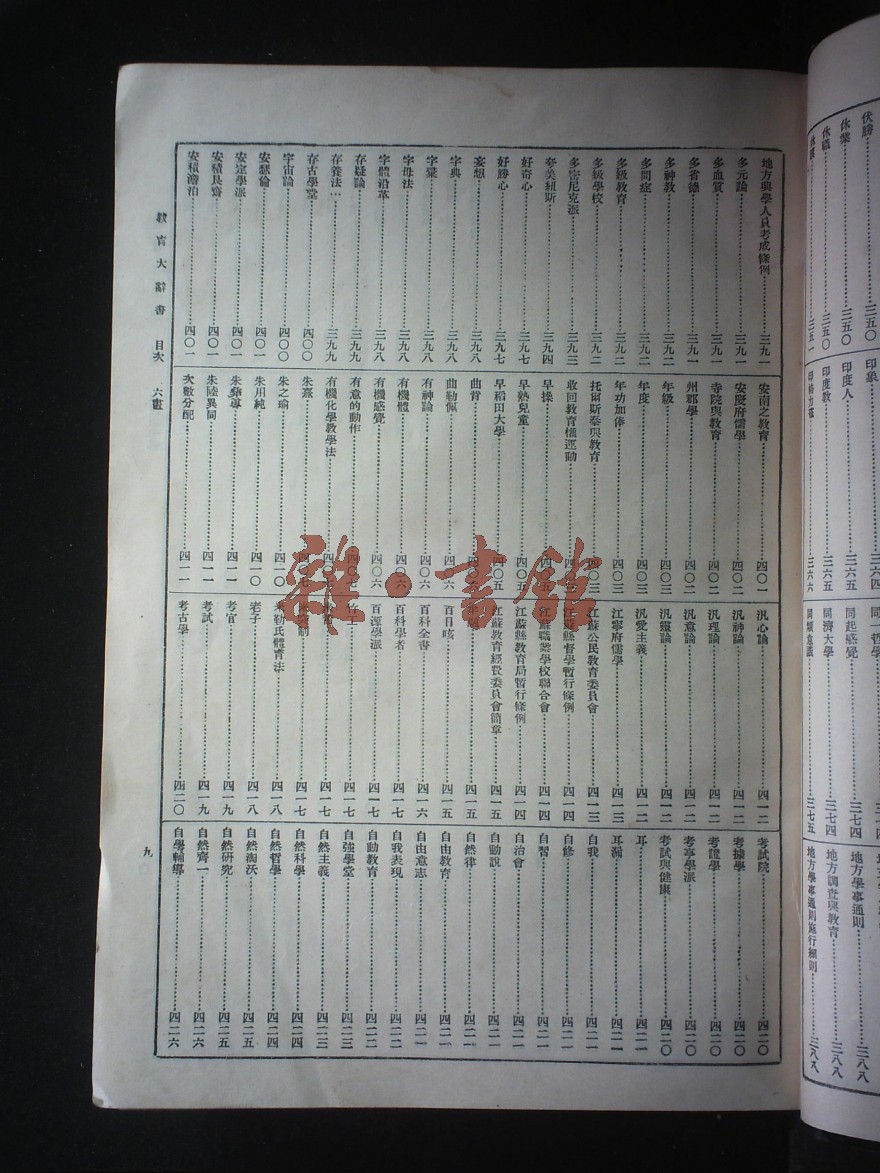 地方興學人員考成條例…三九一
多元論…三九一
多血質…三九一
多省德…三九一
多神教…三九二
多問症…三九二
多級教育…三九二
多級學校…三九二
多密尼克派…三九三
夸美紐斯…三九四
好奇心…三九七
好勝心…三九七
妄想…三九八
字典…三九八
字彙…三九八
字母法…三九八
字體沿革…三九八
存疑論…三九九
存養法…三九九
存古學堂…四〇〇
宇宙論…四〇〇
安慧倫…四〇一
安定學派…四〇一
安積艮齋…四〇一
安積澹泊…四〇一
安南之教育…四〇一
安慶府儒學…四〇二
寺院與教育…四〇二
州郡學…四〇二
年級…四〇三
年度…四〇三
年功加俸…四〇三
托爾斯泰與教育…四〇三
收回教育權運動
早操
早熟兒童…四〇五
早稻田大學…四〇五
曲背
曲勒佩…四〇六
有神論…四〇六
有機體…四〇六
有機感覺…四〇六
有意的動作…四〇七
有機化學教學法
朱熹
朱之瑜…四一〇
朱用純…四一〇
朱舜尊…四一一
朱陸異同…四一一
次數分配…四一一
汎心論…四一二
汎神論…四一二
汎理論…四一二
汎意論…四一二
汎靈論…四一二
汎愛主義…四一二
江寧府儒學…四一三
江蘇公民教育委員會…四一三
江蘇縣督學暫行條例…四一四
江蘇職業學校聯合會…四一四
江蘇縣教育局暫行條例…四一四
江蘇教育經費委員會簡章…四一五
四一五
百日咳…四一五
百科全書…四一六
百科學者…四一七
百源學派…四一七
四一七
四一七
四一七
勒氏體育法…四一八
老子…四一八
考官…四一九
考試…四一九
考古學…四二〇
考試院…四二〇
考據學…四二〇
考證學…四二〇
考亭學派…四二〇
考試與健康…四二〇
耳…四二一
耳漏…四二一
自我…四二一
自修…四二一
自習…四二一
自治會…四二一
自動說…四二一
自然律…四二一
自由教育…四二一
自由意志…四二一
自我表現…四二二
自動教育…四二二
自強學堂…四二三
自然主義…四二三
自然科學…四二四
自然哲學…四二四
自然淘汰…四二五
自然研究…四二五
自然齊一…四二六
自學輔導…四二六
教育大辭書 目次 六畫
九
雜·書館
伏勝
休業…三五〇
休職…三五〇
三五一
印象…三六四
印度人…三六五
印度教…三六五
三六六
同一哲學
同起感覺…三七四
同濟大學…三七四
同類意識…三七五
地方學事通則…三八八
地方調查與教育…三八八
地方學事通則施行細則…三八八